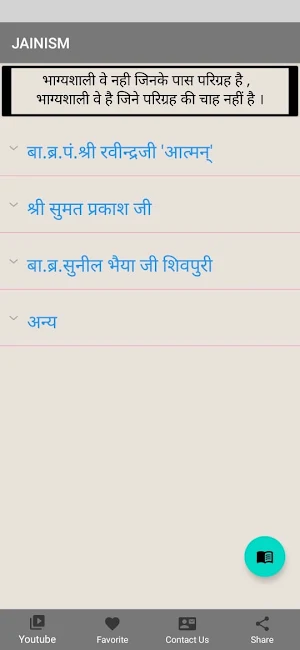 JAINISM
भाग्यशाली वे नही जिनके पास परिग्रह है ,
भाग्यशाली वे है जिने परिग्रह की चाह नहीं है ।
बा.ब्र.पं.श्री रवीन्द्रजी 'आत्मन्'
श्री सुमत प्रकाश जी
बा.ब्र.सुनील भैया जी शिवपुरी
अन्य
Youtube
Favorite
Contact Us
Share